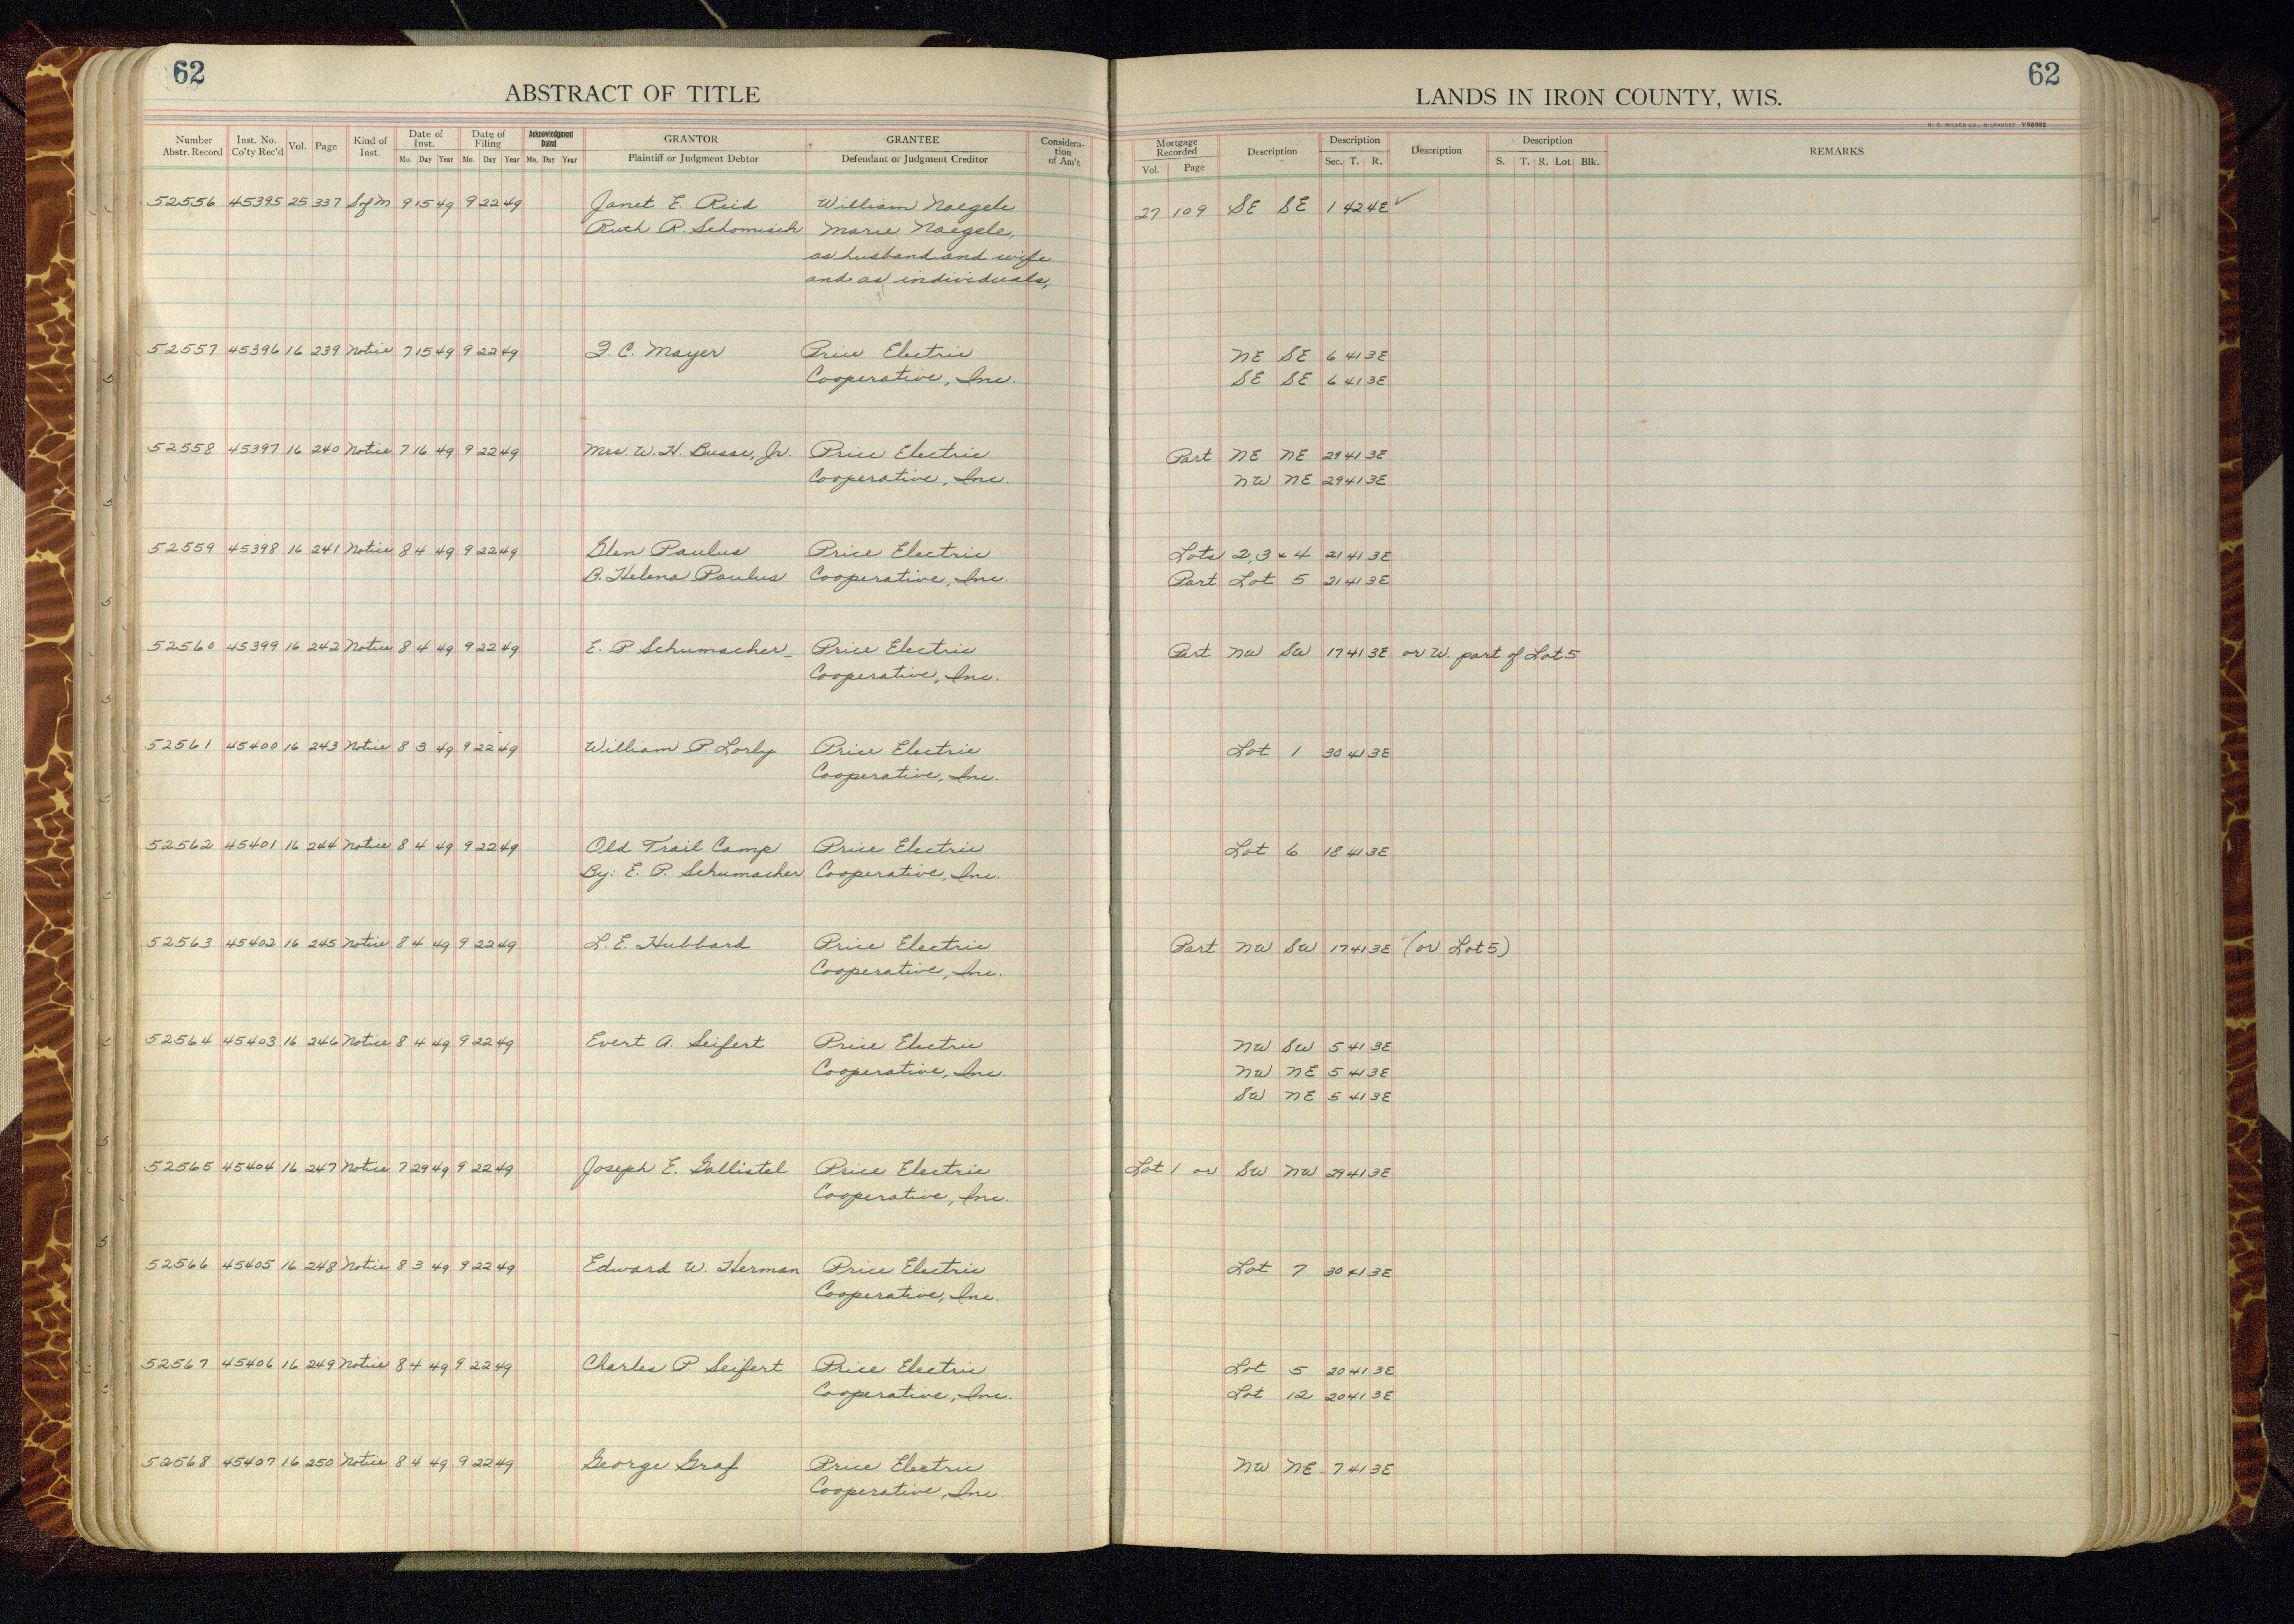 62
ABSTRACT OF TITLE
Number Abstr. Record Inst. No. Co'ty Rec'd Vol. Page Kind of Inst. Date of Inst. Mo. Day Year Date of Filing Mo. Day Year Acknowledgment Dated Mo. Day Year GRANTOR Plaintiff or Judgment Debtor GRANTEE Defendant or Judgment Creditor Considera-tion of Am't
52556 45395 25 337 S of M 9 15 49 9 22 49 Janet E. Reid William Naegele
Ruth R. Schomisch Marie Naegele,
as husband and wife
and as individuals,
52557 45396 16 239 Notice 7 15 49 9 22 49 F. C. Mayer Price Electric
Cooperative, Inc.
52558 45397 16 240 Notice 7 16 49 9 22 49 Mrs. W. H. Busse, Jr. Price Electric
Cooperative, Inc.
52559 45398 16 241 Notice 8 4 49 9 22 49 Glen Paulus Price Electric
B. Helena Paulus Cooperative, Inc.
52560 45399 16 242 Notice 8 4 49 9 22 49 E. P. Schumacher Price Electric
Cooperative, Inc.
52561 45400 16 243 Notice 8 3 49 9 22 49 William P. Price Electric
Cooperative, Inc.
52562 45401 16 244 Notice 8 4 49 9 22 49 Old Trail Camp Price Electric
By: E. P. Schumacher Cooperative, Inc.
52563 45402 16 245 Notice 8 4 49 9 22 49 L. E. Hubbard Price Electric
Cooperative, Inc.
52564 45403 16 246 Notice 8 4 49 9 22 49 Evert A. Seifert Price Electric
Cooperative, Inc.
52565 45404 16 247 Notice 7 29 49 9 22 49 Joseph E. Gallistel Price Electric
Cooperative, Inc.
52566 45405 16 248 Notice 8 3 49 9 22 49 Edward W. Herman Price Electric
Cooperative, Inc.
52567 45406 16 249 Notice 8 4 49 9 22 49 Charles P. Seifert Price Electric
Cooperative, Inc.
52568 45407 16 250 Notice 8 4 49 9 22 49 George Graf Price Electric
Cooperative, Inc.
62
LANDS IN IRON COUNTY, WIS.
H. C. MILLER CO., MILWAUKEE
Mortgage Recorded Vol. Page Description Description Sec. T. R. Description Description S. T. R. Lot Blk. REMARKS
27 109 SE SE 1 42 4E ✓
NE SE 6 41 3E
SE SE 6 41 3E
Part NE NE 29 41 3E
NW NE 29 41 3E
Lots 2, 3 & 4 21 41 3E
Part Lot 5 21 41 3E
Part NW SW 17 41 3E or W. part of Lot 5
Lot 1 30 41 3E
Lot 6 18 41 3E
Part NW SW 17 41 3E (or Lot 5)
NW SW 5 41 3E
NW NE 5 41 3E
SW NE 5 41 3E
Lot 1 or SW NW 29 41 3E
Lot 7 30 41 3E
Lot 5 20 41 3E
Lot 12 20 41 3E
NW NE 7 41 3E